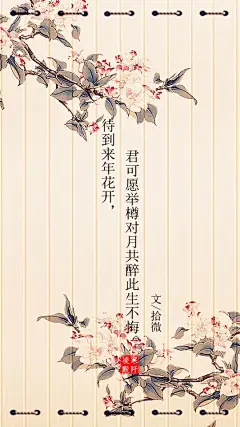 待到来年花开，
君可愿举樽对月共醉此生不悔
文/拾微